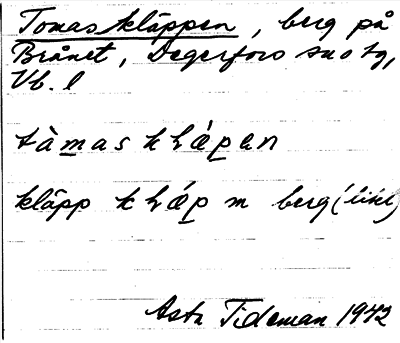 Tomaskläppen, berg på
Brånet, Degerfors sn o tg,
Vb. l
tàmas kḷæ̀pen
kläpp kḷæ̀p m berg (litet)
Asta Tideman 1942